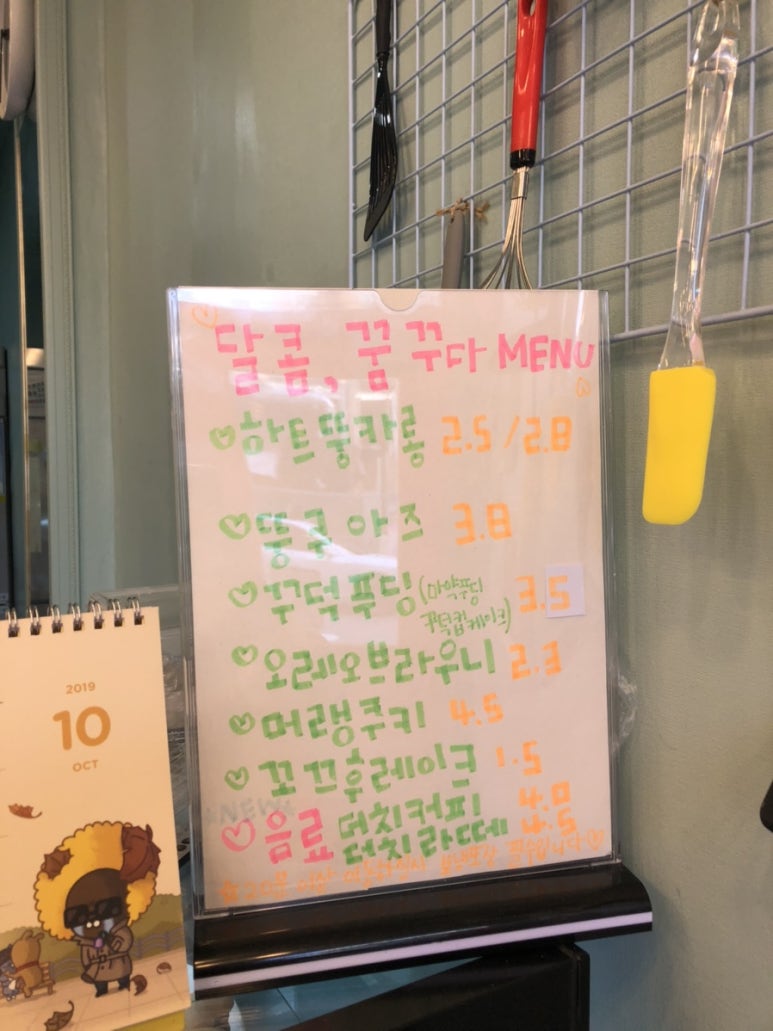 달콤, 꿈 꾸다 MENU
하트뚱카롱 2.5 / 2.8
뚱쿠아즈 3.8
꾸덕푸딩 (마약푸딩 3.5
꾸덕컵케이크)
오레오브라우니 2.3
머랭쿠키 4.5
꼬끄후레이크 1.5
NEW
음료 더치커피 4.0
더치라떼 4.5
2019
10
OCT